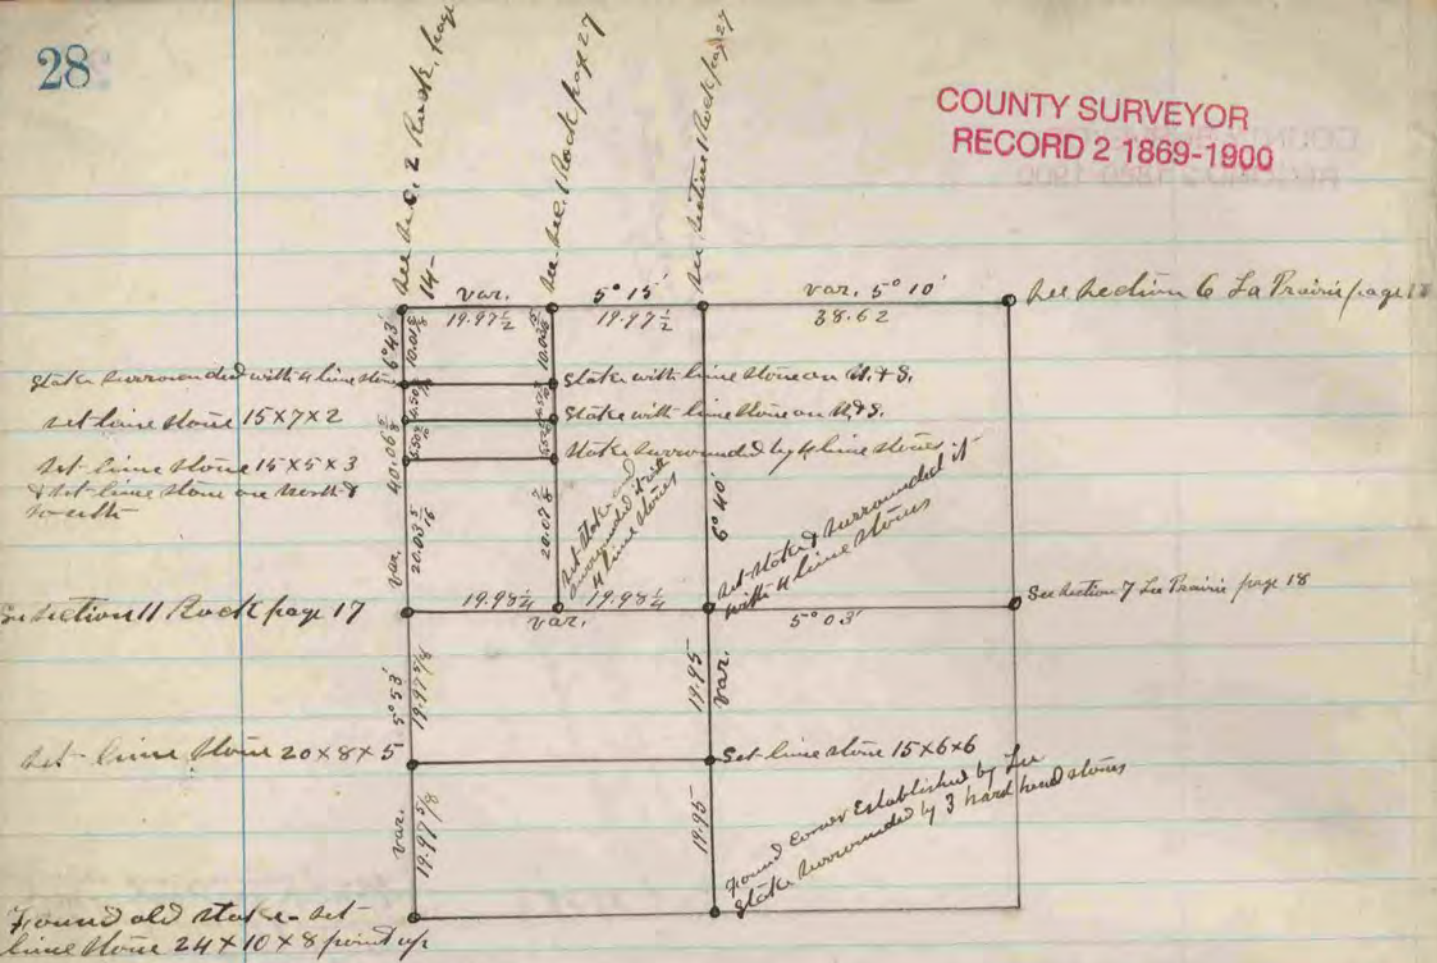 28
COUNTY SURVEYOR
RECORD 2 1869-1900
see sec. 2 Rock, page
14-
see sec. 1 Rock page 27
see section 1 Rock page 27
var.
5° 15'
var. 5° 10'
see section 6 La Prairie page
19.97 1/2
19.97 1/2
38.62
6° 43'
stake surrounded with 4 lime stone
stake with lime stone on N. & S.
set lime stone 15 x 7 x 2
stake with lime stone on N & S.
set lime stone 15 x 5 x 3
& set lime stone on north &
south
stake surrounded by 4 lime stones
40.06 5/8
var.
20.03 5/16
20.07 7/8
set stake and
surrounded it with
4 lime stones
6° 40'
set stake & surrounded it
with 4 lime stones
See section 11 Rock page 17
19.98 1/4
19.98 1/4
var.
5° 03'
See section 7 La Prairie page 18
5° 53'
19.97 5/8
19.95
var.
set lime stone 20 x 8 x 5
Set lime stone 15 x 6 x 6
var.
19.97 5/8
19.95
Found corner Established by Lee
stake surrounded by 3 hard head stones
Found old stake - set
lime stone 24 x 10 x 8 point up